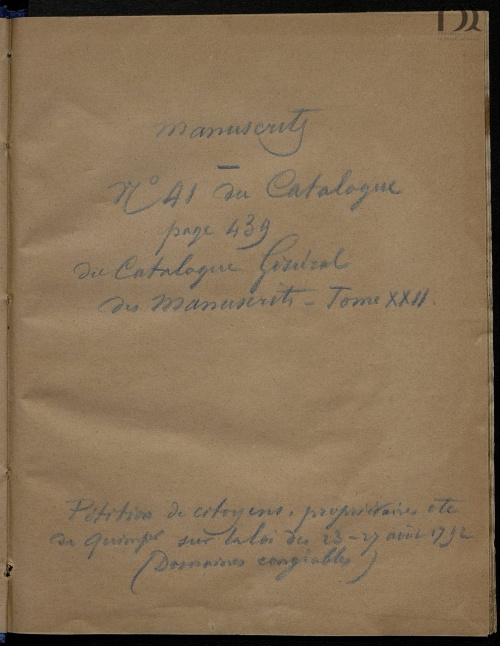 Manuscrits
—
N° 41 du Catalogue
page 439
du Catalogue Général
des Manuscrits - Tome XXII.
Pétition de citoyens, propriétaires etc
de Quimper sur la loi des 23-27 août 1792
(Domaines congéables)